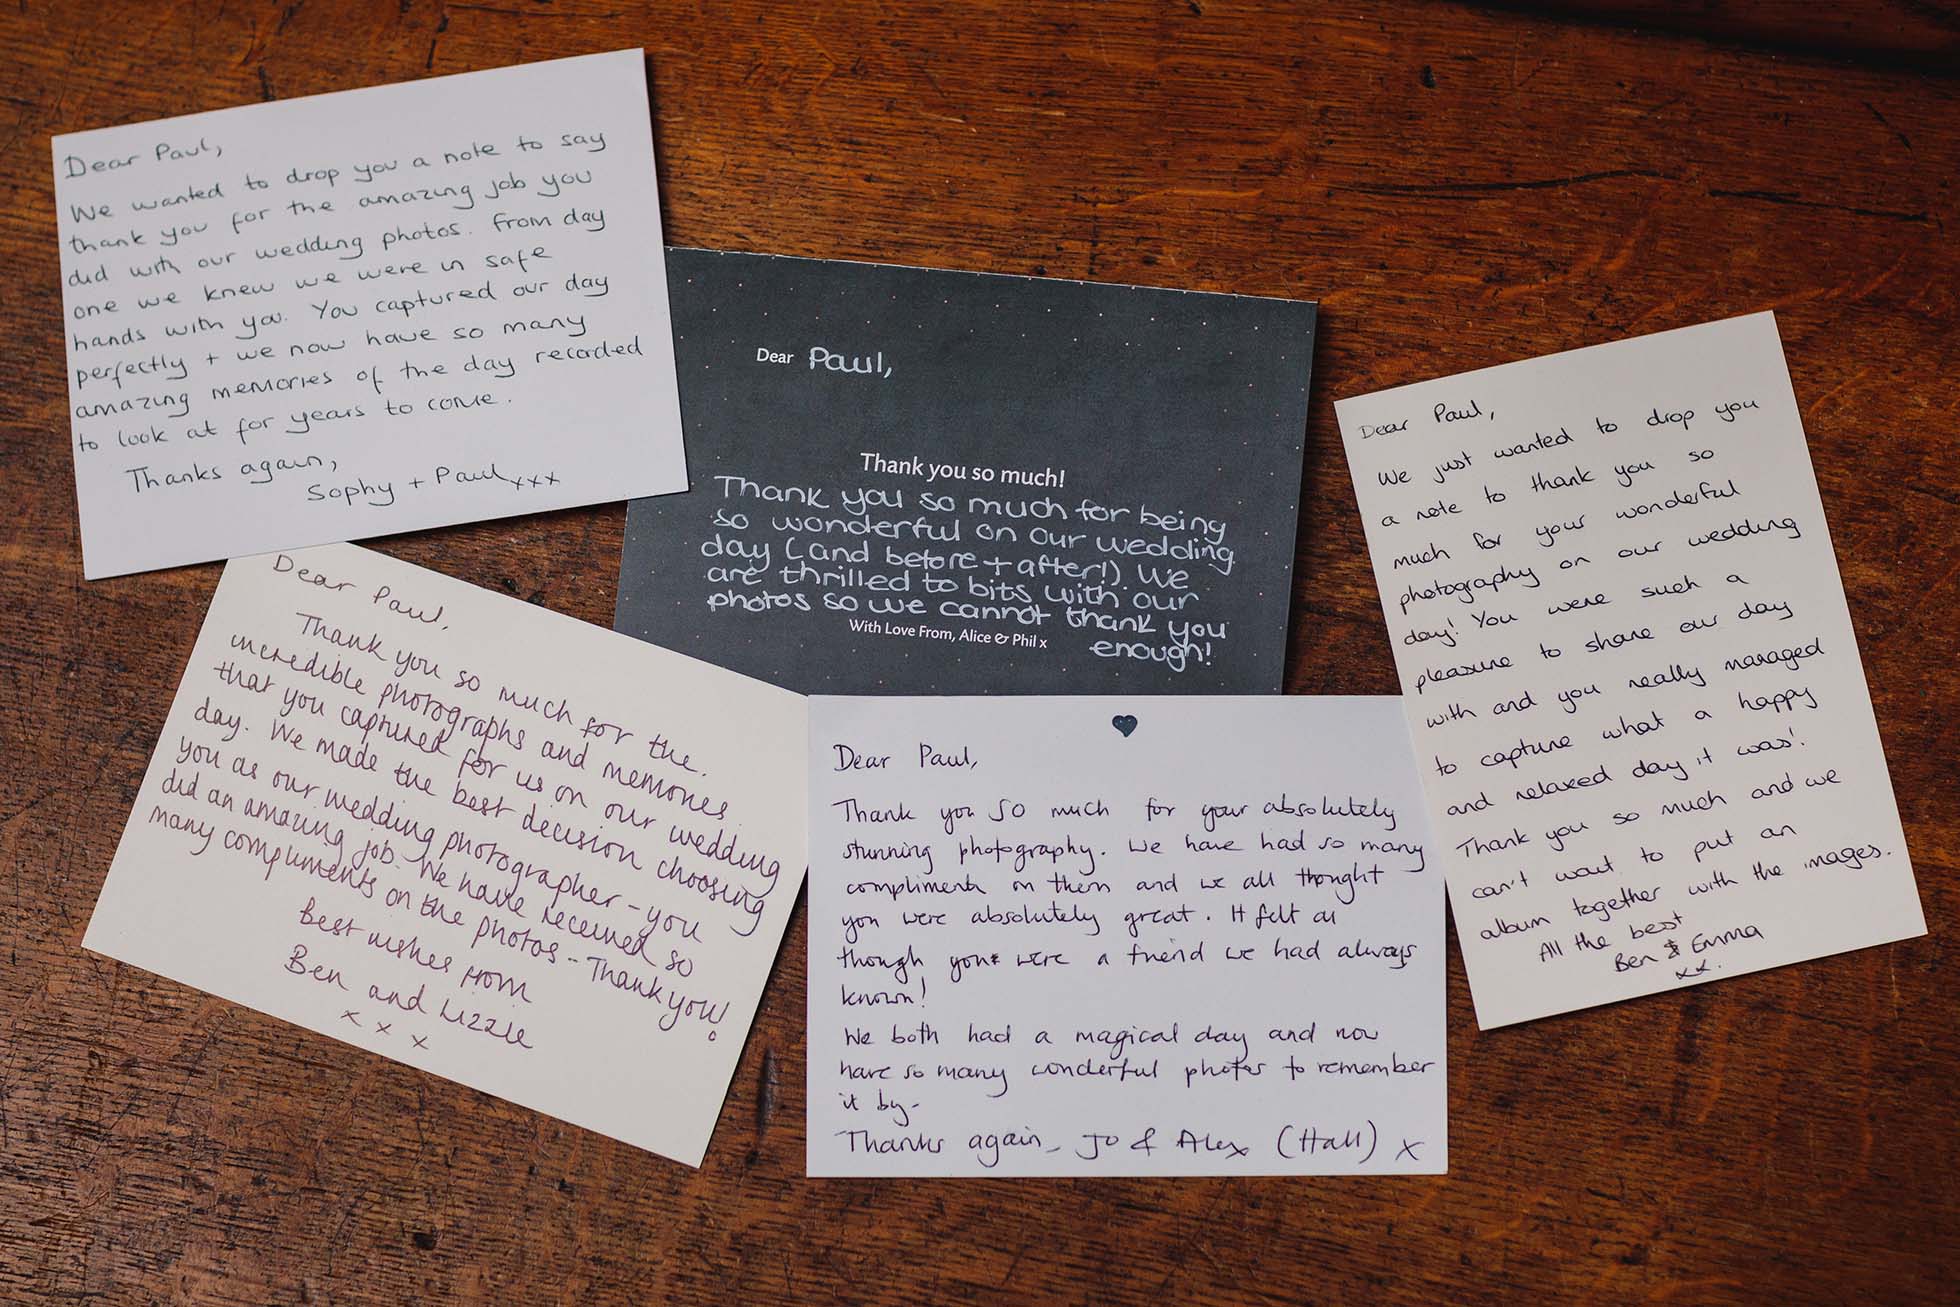 Dear Paul,
We wanted to drop you a note to say
thank you for the amazing job you
did with our wedding photos. From day
one we knew we were in safe
hands with you. You captured our day
perfectly + we now have so many
amazing memories of the day recorded
to look at for years to come.
Thanks again,
Sophy + Paul xxx
Dear Paul,
Thank you so much!
Thank you so much for being
so wonderful on our wedding
day (and before + after!). We
are thrilled to bits with our
photos so we cannot thank you
enough!
With Love From, Alice & Phil x
Dear Paul,
We just wanted to drop you
a note to thank you so
much for your wonderful
photography on our wedding
day! You were such a
pleasure to share our day
with and you really managed
to capture what a happy
and relaxed day it was!
Thank you so much and we
can't wait to put an
album together with the images.
All the best
Ben & Emma
xx.
Dear Paul,
Thank you so much for the
incredible photographs and memories
that you captured for us on our wedding
day. We made the best decision choosing
you as our wedding photographer - you
did an amazing job. We have received so
many compliments on the photos - Thank you!
Best wishes from
Ben and Lizzie
x x x
Dear Paul,
Thank you SO much for your absolutely
stunning photography. We have had so many
compliments on them and we all thought
you were absolutely great. It felt as
though you were a friend we had always
known!
We both had a magical day and now
have so many wonderful photos to remember
it by-
Thanks again, Jo & Alex (Hall) x